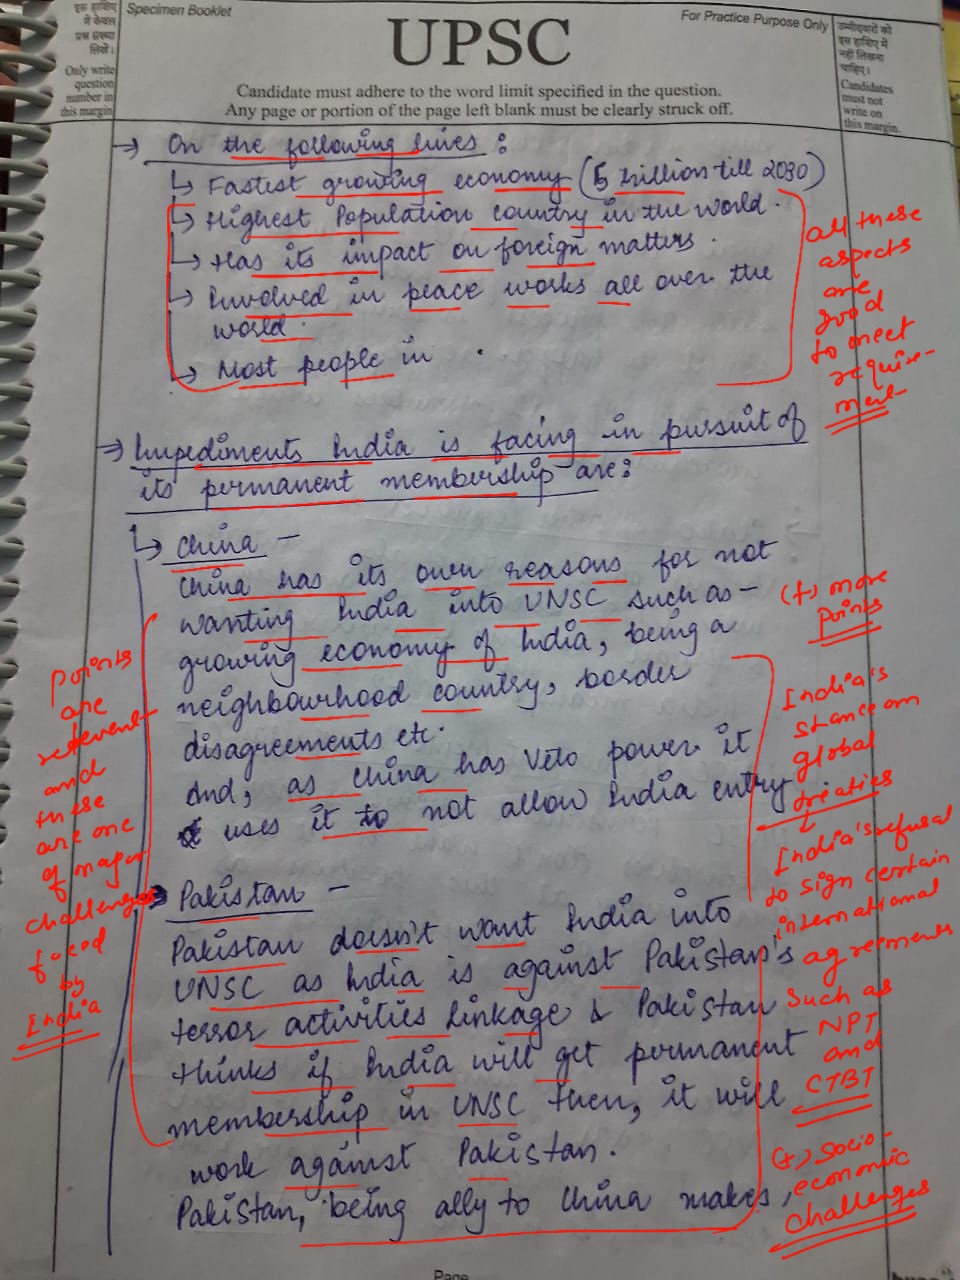 इस हाशिए
में केवल
प्रश्न संख्या
लिखें।
Only write
question
number in
this margin
Specimen Booklet
For Practice Purpose Only
UPSC
Candidate must adhere to the word limit specified in the question.
Any page or portion of the page left blank must be clearly struck off.
उम्मीदवारों को
इस हाशिए में
नहीं लिखना
चाहिए।
Candidates
must not
write on
this margin.
→ On the following lines :
↳ Fastest growing economy (5 trillion till 2030)
↳ Highest Population country in the world.
↳ Has its impact on foreign matters.
↳ Involved in peace works all over the
world.
↳ Most people in .
all these
aspects
are
good
to meet
require-
ment
→ Impediments India is facing in pursuit of
its permanent membership are:
↳ China -
China has its own reasons for not
wanting India into UNSC such as -
growing economy of India, being a
neighbourhood country, border
disagreements etc.
And, as China has Veto power it
uses it to not allow India entry
Points
are
relevent
and
these
are one
of major
challenges
faced
by
India
(+) more
points
India's
stance on
global
treaties
↓
India's refusal
to sign certain
international
agreements
such as
NPT
and
CTBT
(+) Socio-
economic
challenges
→ Pakistan -
Pakistan doesn't want India into
UNSC as India is against Pakistan's
terror activities linkage & Pakistan
thinks if India will get permanent
membership in UNSC then, it will
work against Pakistan.
Pakistan, being ally to China makes,
Page